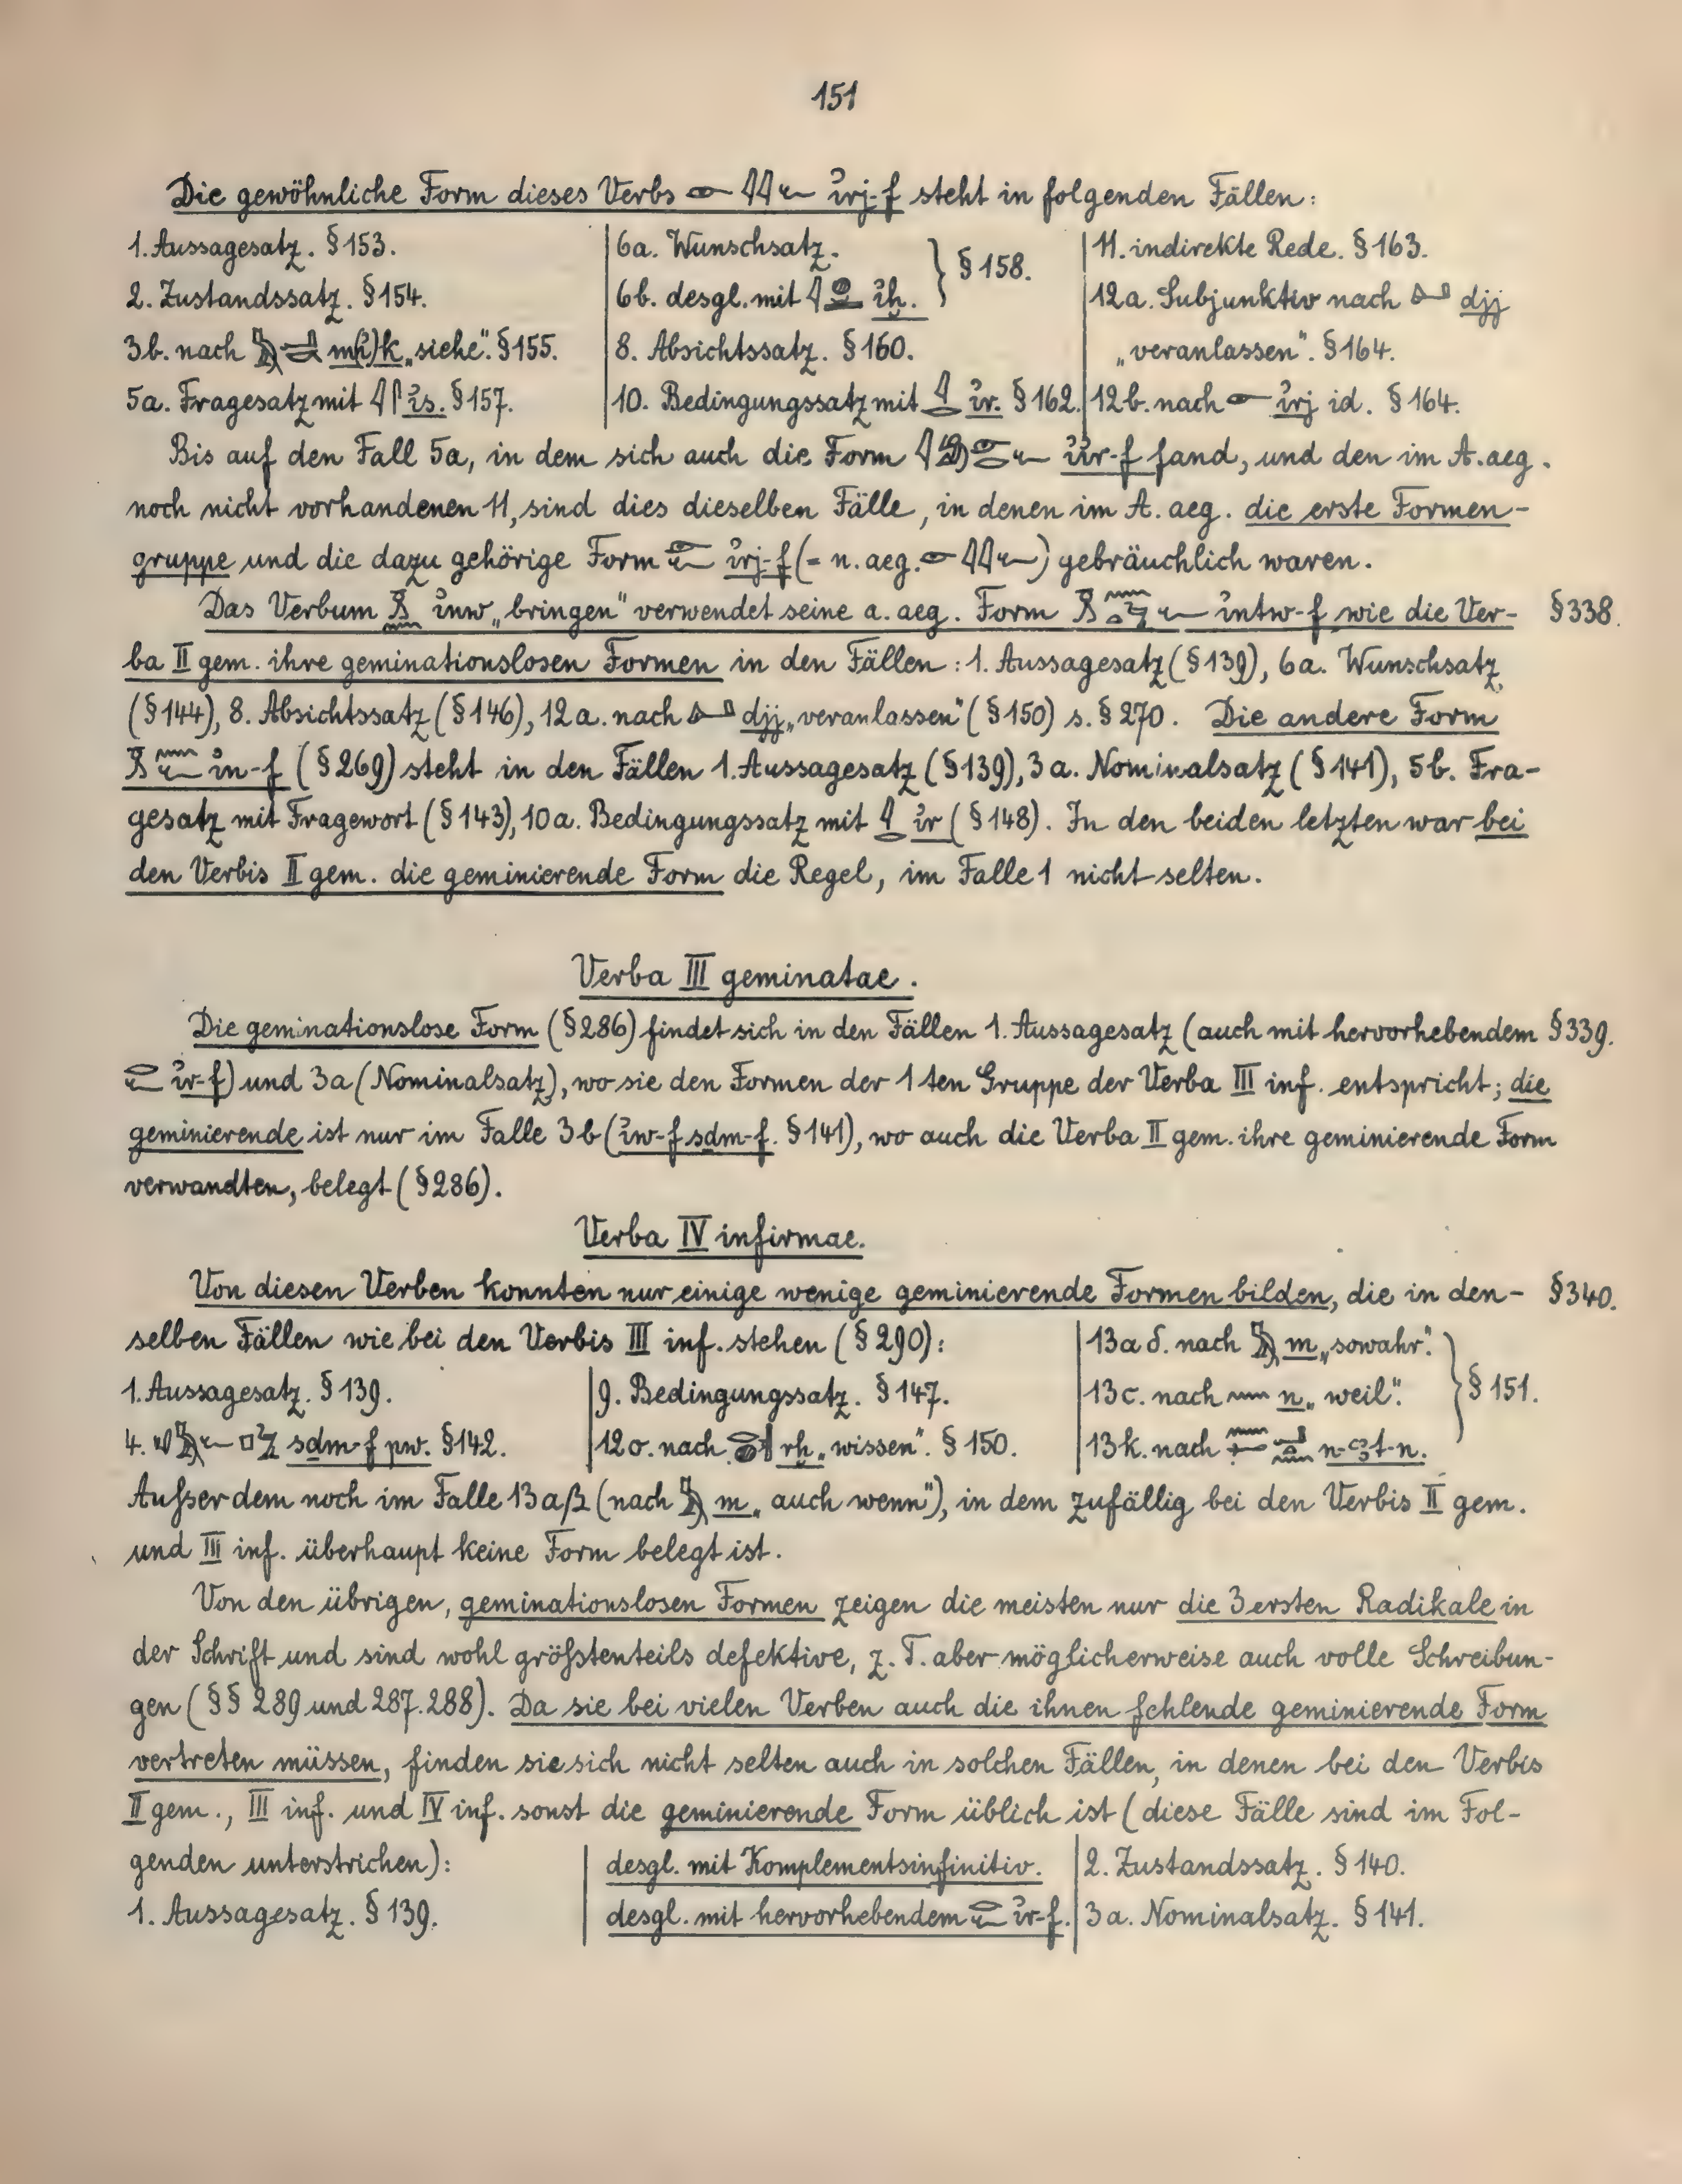 151
Die gewöhnliche Form dieses Verbs 𓁹𓇋𓇋𓆑 ı͗rj-f steht in folgenden Fällen:
1. Aussagesatz. § 153. 6a. Wunschsatz. } § 158. 11. indirekte Rede. § 163.
2. Zustandssatz. § 154. 6b. desgl. mit ı͗ḫ. 12a. Subjunktiv nach djj
3b. nach m(ı͗)k „siehe“. § 155. 8. Absichtssatz. § 160. „veranlassen“. § 164.
5a. Fragesatz mit 𓇋𓋴 ı͗s. § 157. 10. Bedingungssatz mit 𓇋𓂋 ı͗r. § 162. 12b. nach 𓁹 ı͗rj id. § 164.
Bis auf den Fall 5a, in dem sich auch die Form ı͗ı͗r-f fand, und den im A. aeg.
noch nicht vorhandenen 11, sind dies dieselben Fälle, in denen im A. aeg. die erste Formen-
gruppe und die dazu gehörige Form 𓁹𓆑 ı͗rj-f (= n. aeg. 𓁹𓇋𓇋𓆑) gebräuchlich waren.
Das Verbum ı͗nw „bringen“ verwendet seine a. aeg. Form ı͗ntw-f wie die Ver- § 338.
ba II gem. ihre geminationslosen Formen in den Fällen: 1. Aussagesatz (§ 139), 6a. Wunschsatz
(§ 144), 8. Absichtssatz (§ 146), 12a. nach djj „veranlassen“ (§ 150) s. § 270. Die andere Form
𓏎𓈖𓆑 ı͗n-f (§ 269) steht in den Fällen 1. Aussagesatz (§ 139), 3a. Nominalsatz (§ 141), 5b. Fra-
gesatz mit Fragewort (§ 143), 10a. Bedingungssatz mit 𓇋𓂋 ı͗r (§ 148). In den beiden letzten war bei
den Verbis II gem. die geminierende Form die Regel, im Falle 1 nicht selten.
Verba III geminatae.
Die geminationslose Form (§ 286) findet sich in den Fällen 1. Aussagesatz (auch mit hervorhebendem § 339.
𓂋𓆑 ı͗r-f) und 3a (Nominalsatz), wo sie den Formen der 1ten Gruppe der Verba III inf. entspricht; die
geminierende ist nur im Falle 3b (ı͗w-f sḏm-f. § 141), wo auch die Verba II gem. ihre geminierende Form
verwandten, belegt (§ 286).
Verba IV infirmae.
Von diesen Verben konnten nur einige wenige geminierende Formen bilden, die in den- § 340.
selben Fällen wie bei den Verbis III inf. stehen (§ 290): 13a δ. nach 𓅓 m „sowahr“. } § 151.
1. Aussagesatz. § 139. 9. Bedingungssatz. § 147. 13c. nach 𓈖 n „weil“.
4. sḏm-f pw. § 142. 12σ. nach rḫ „wissen“. § 150. 13k. nach n-ꜥꜣt-n.
Ausserdem noch im Falle 13aβ (nach 𓅓 m „auch wenn“), in dem zufällig bei den Verbis II gem.
und III inf. überhaupt keine Form belegt ist.
Von den übrigen, geminationslosen Formen zeigen die meisten nur die 3 ersten Radikale in
der Schrift und sind wohl größtenteils defektive, z. T. aber möglicherweise auch volle Schreibun-
gen (§§ 289 und 287. 288). Da sie bei vielen Verben auch die ihnen fehlende geminierende Form
vertreten müssen, finden sie sich nicht selten auch in solchen Fällen, in denen bei den Verbis
II gem., III inf. und IV inf. sonst die geminierende Form üblich ist (diese Fälle sind im Fol-
genden unterstrichen): desgl. mit Komplementsinfinitiv. 2. Zustandssatz. § 140.
1. Aussagesatz. § 139. desgl. mit hervorhebendem 𓂋𓆑 ı͗r-f. 3a. Nominalsatz. § 141.